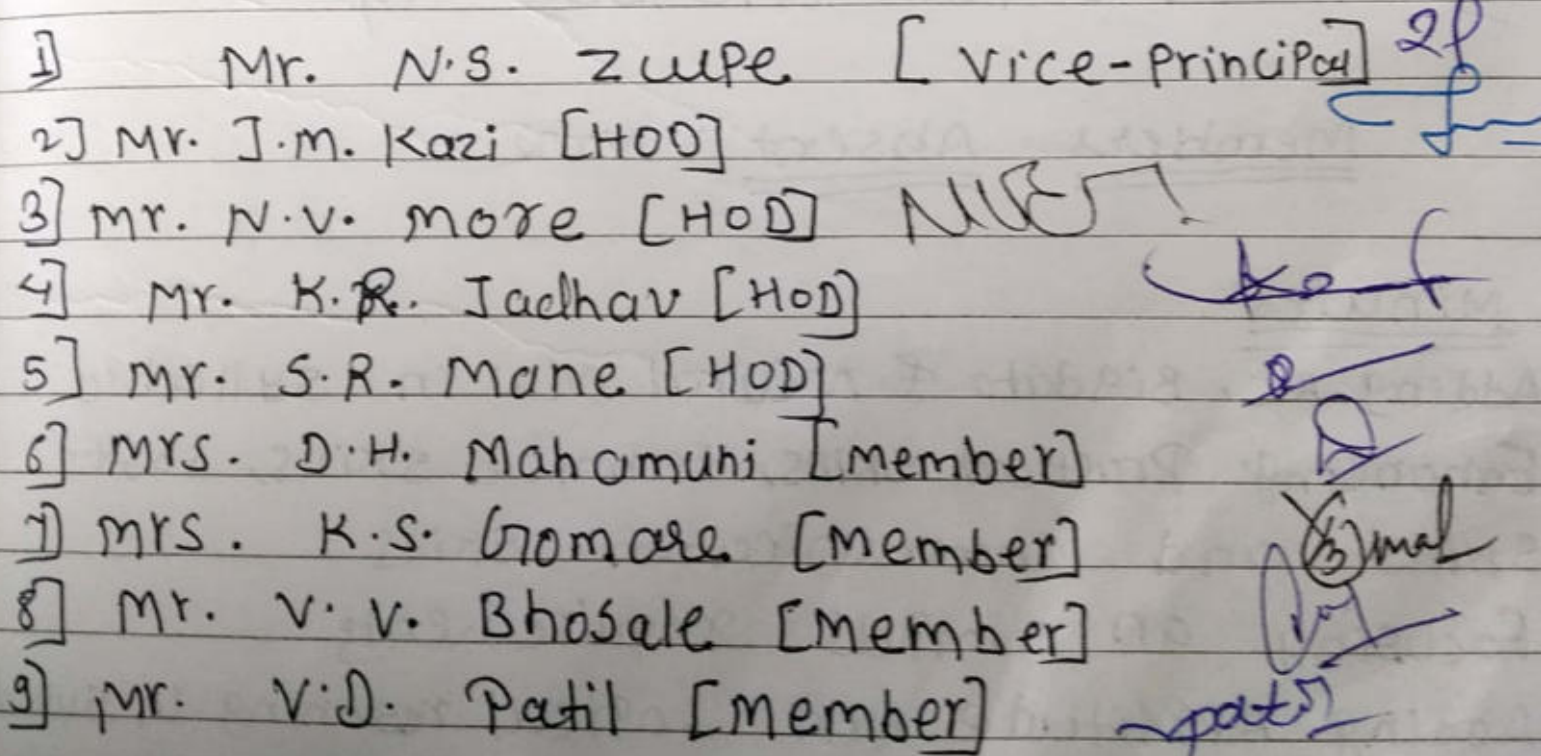 1] Mr. N.S. Zulpe [Vice-Principal]
2] Mr. J.M. Kazi [HOD]
3] Mr. N.V. More [HOD]
4] Mr. K.R. Jadhav [HOD]
5] Mr. S.R. Mane [HOD]
6] Mrs. D.H. Mahamuni [member]
7] Mrs. K.S. Gomare [Member]
8] Mr. V.V. Bhosale [Member]
9] Mr. V.D. Patil [Member]